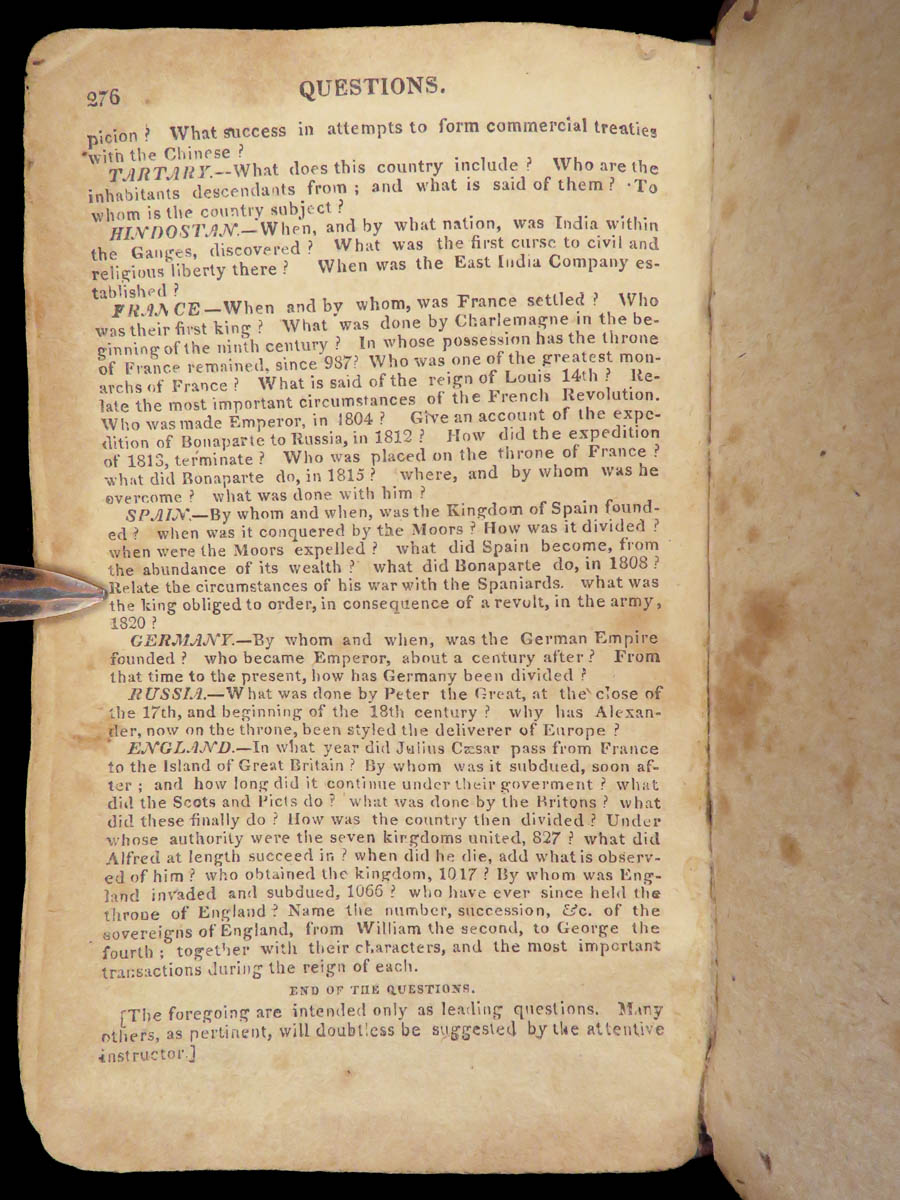 276
QUESTIONS.
picion ? What success in attempts to form commercial treaties
with the Chinese ?
TARTARY.--What does this country include ? Who are the
inhabitants descendants from ; and what is said of them ? To
whom is the country subject ?
HINDOSTAN.—When, and by what nation, was India within
the Ganges, discovered ? What was the first curse to civil and
religious liberty there ? When was the East India Company es-
tablished ?
FRANCE—When and by whom, was France settled ? Who
was their first king ? What was done by Charlemagne in the be-
ginning of the ninth century ? In whose possession has the throne
of France remained, since 987? Who was one of the greatest mon-
archs of France ? What is said of the reign of Louis 14th ? Re-
late the most important circumstances of the French Revolution.
Who was made Emperor, in 1804 ? Give an account of the expe-
dition of Bonaparte to Russia, in 1812 ? How did the expedition
of 1813, terminate ? Who was placed on the throne of France ?
what did Bonaparte do, in 1815 ? where, and by whom was he
overcome ? what was done with him ?
SPAIN.—By whom and when, was the Kingdom of Spain found-
ed ? when was it conquered by the Moors ? How was it divided ?
when were the Moors expelled ? what did Spain become, from
the abundance of its wealth ? what did Bonaparte do, in 1808 ?
Relate the circumstances of his war with the Spaniards. what was
the king obliged to order, in consequence of a revolt, in the army,
1820 ?
GERMANY.—By whom and when, was the German Empire
founded ? who became Emperor, about a century after ? From
that time to the present, how has Germany been divided ?
RUSSIA.—What was done by Peter the Great, at the close of
the 17th, and beginning of the 18th century ? why has Alexan-
der, now on the throne, been styled the deliverer of Europe ?
ENGLAND.—In what year did Julius Cæsar pass from France
to the Island of Great Britain ? By whom was it subdued, soon af-
ter ; and how long did it continue under their goverment ? what
did the Scots and Picts do ? what was done by the Britons ? what
did these finally do ? How was the country then divided ? Under
whose authority were the seven kingdoms united, 827 ? what did
Alfred at length succeed in ? when did he die, add what is observ-
ed of him ? who obtained the kingdom, 1017 ? By whom was Eng-
land invaded and subdued, 1066 ? who have ever since held the
throne of England ? Name the number, succession, &c. of the
sovereigns of England, from William the second, to George the
fourth ; together with their characters, and the most important
transactions during the reign of each.
END OF THE QUESTIONS.
[The foregoing are intended only as leading questions. Many
others, as pertinent, will doubtless be suggested by the attentive
instructor.]